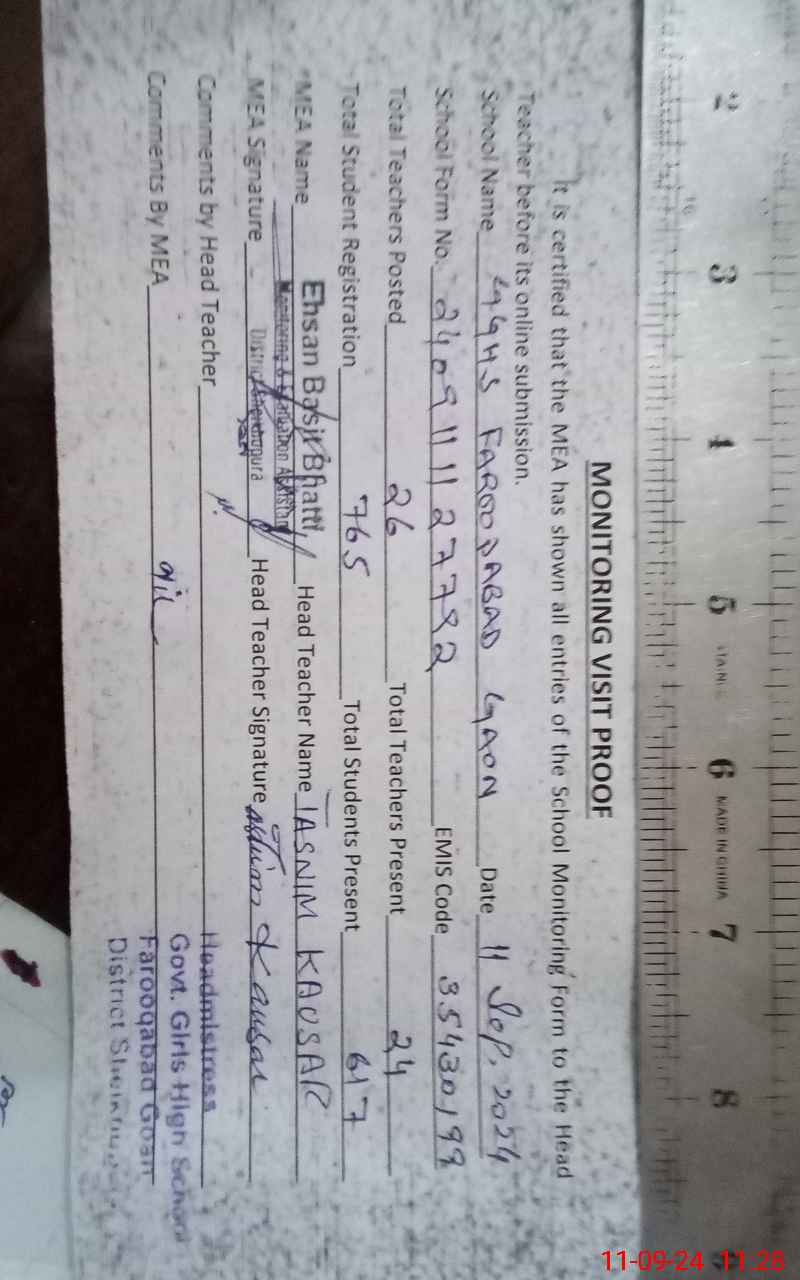 MONITORING VISIT PROOF
It is certified that the MEA has shown all entries of the School Monitoring Form to the Head
Teacher before its online submission.
School Name GGHS FAROOQABAD GAON Date 11 Sep, 2024
School Form No. 2409111127792 EMIS Code 35430199
Total Teachers Posted 26 Total Teachers Present 24
Total Student Registration 765 Total Students Present 617
MEA Name Ehsan Basir Bhatti Head Teacher Name TASNIM KAUSAR
Monitoring & Evaluation Assistant
MEA Signature District Sheikhupura Head Teacher Signature Kausar
Comments by Head Teacher
Headmistress
Govt. Girls High School
Comments By MEA
Farooqabad Goan
District
2 3 4 5 6 MADE IN CHINA 7 8
11-09-24 11:28